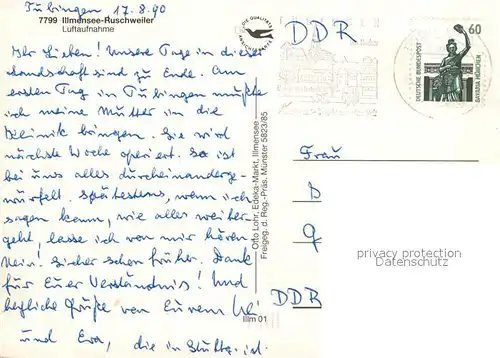 Tübingen 17.8.90
7799 Illmensee-Ruschweiler
Luftaufnahme
Ihr Lieben! Unsere Tage in dieser
Landschaft sind zu Ende. Am
ersten Tag in Tübingen mußte
ich meine Mutter in die
Klinik bringen. Sie wird
nächste Woche operiert. So ist
bei uns alles durcheinanderge-
würfelt. Spätestens, wenn ich
sagen kann, wie alles weiter-
geht, lasse ich von mir hören.
Nein! Sicher schon früher. Dank
für Euer Verständnis! Und
herzliche Grüße von Eurem
und Eva, die in Stuttg. ist.
DIE QUALITÄTS
ANSICHTSKARTE
Otto Lohr, Edeka-Markt, Illmensee
Freigeg. d. Reg.-Präs. Münster 5823/85
Illm 01
DDR
60
DEUTSCHE BUNDESPOST
BAVARIA MÜNCHEN
Frau
D
DDR
privacy protection
Datenschutz